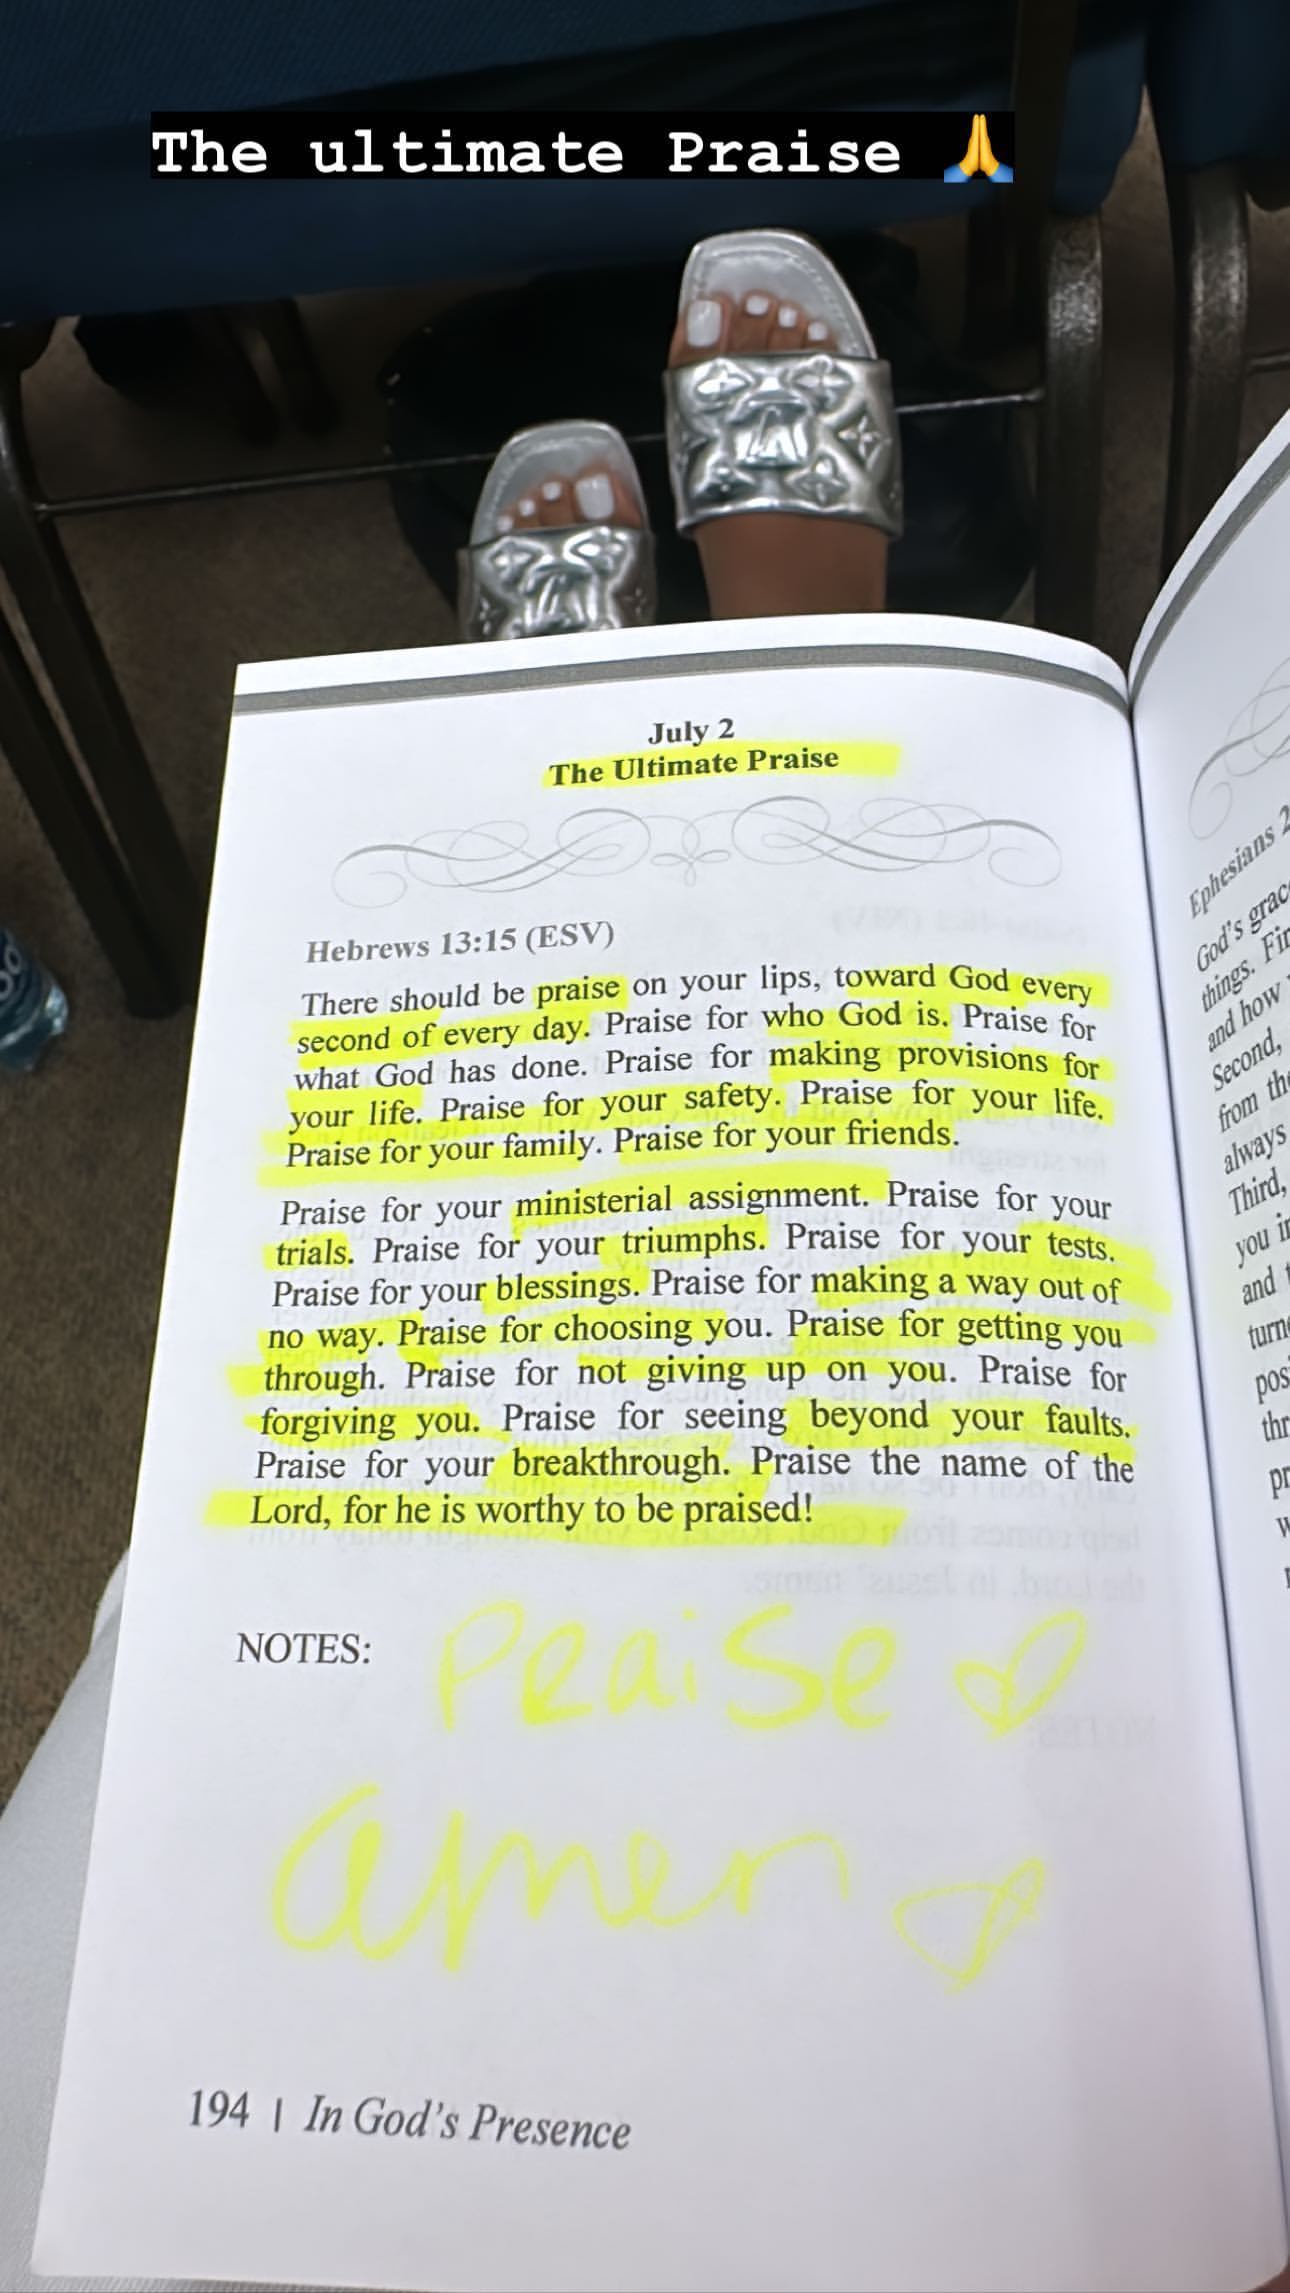 The ultimate Praise 🙏
July 2
The Ultimate Praise
Hebrews 13:15 (ESV)
There should be praise on your lips, toward God every
second of every day. Praise for who God is. Praise for
what God has done. Praise for making provisions for
your life. Praise for your safety. Praise for your life.
Praise for your family. Praise for your friends.
Praise for your ministerial assignment. Praise for your
trials. Praise for your triumphs. Praise for your tests.
Praise for your blessings. Praise for making a way out of
no way. Praise for choosing you. Praise for getting you
through. Praise for not giving up on you. Praise for
forgiving you. Praise for seeing beyond your faults.
Praise for your breakthrough. Praise the name of the
Lord, for he is worthy to be praised!
NOTES: Praise
amen
194 | In God's Presence
Ephesians 2
God's
things.
and how
Second,
from
always
Third,
you
and